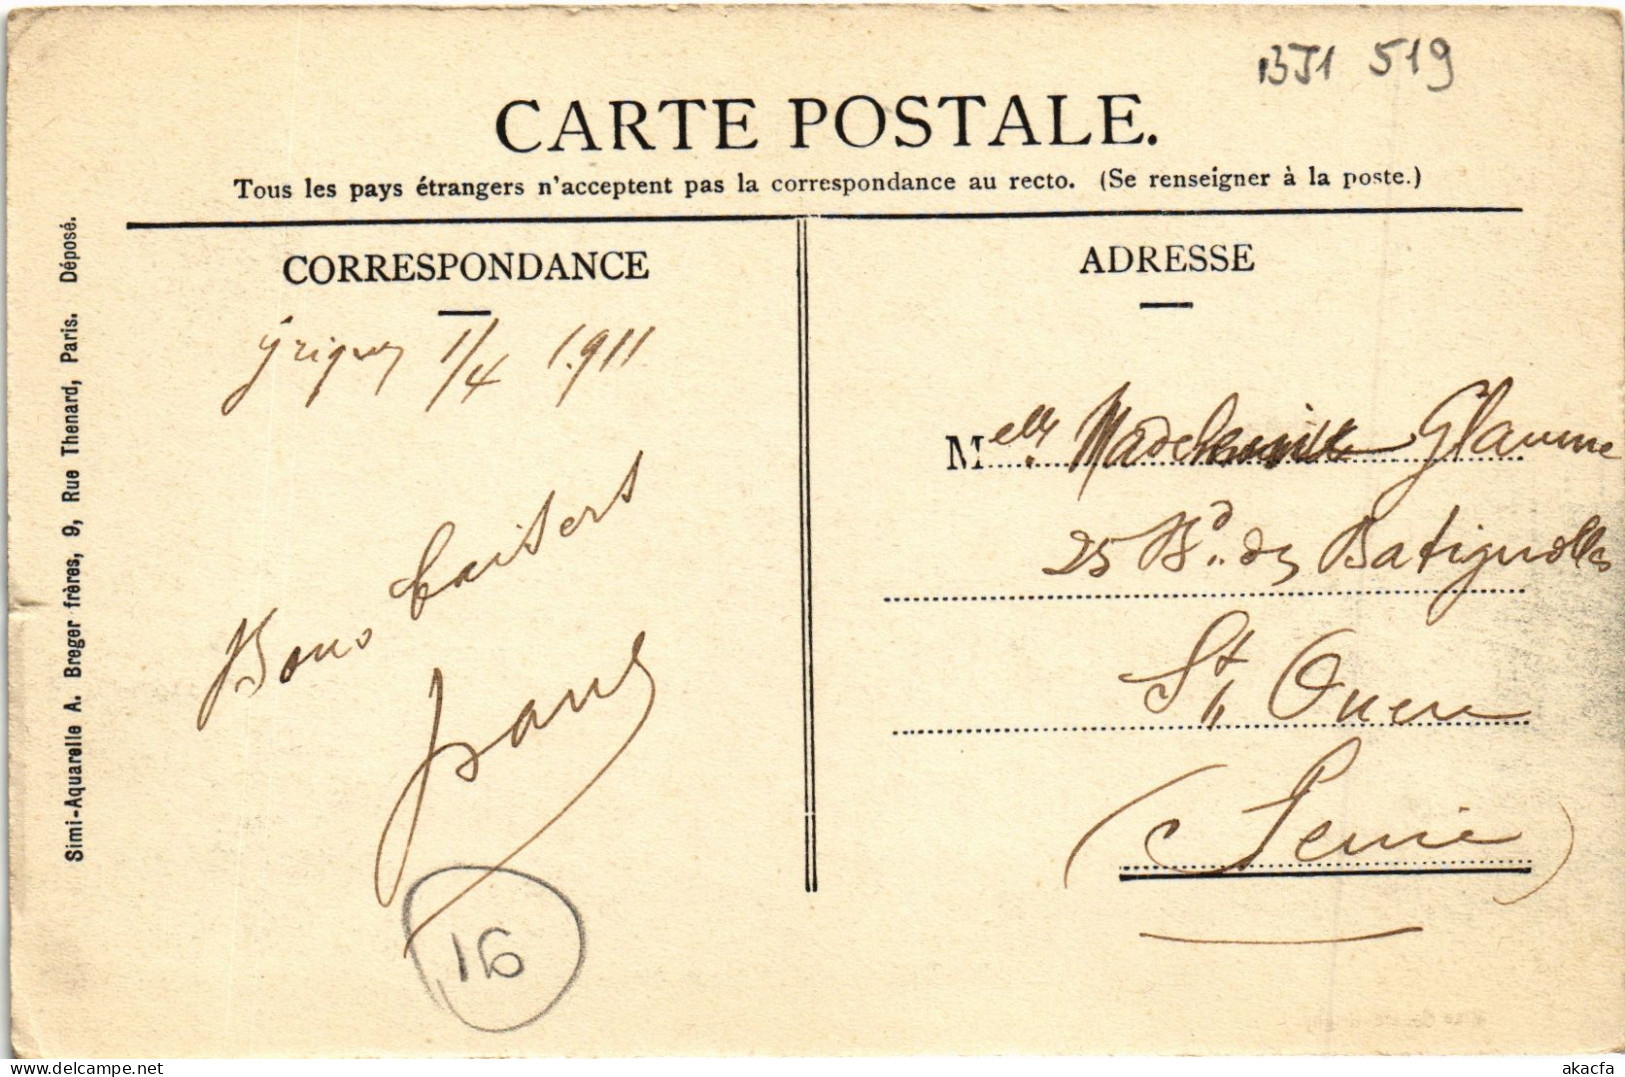 BJ1 519
CARTE POSTALE.
Tous les pays étrangers n'acceptent pas la correspondance au recto. (Se renseigner à la poste.)
CORRESPONDANCE
1/4 1911
Bons baisers
Simi-Aquarelle A. Breger frères, 9, Rue Thenard, Paris. Déposé.
16
ADRESSE
Melle Madeleine Glaume
25 Bd. des Batignolles
St Ouen
(Seine)
akacfa